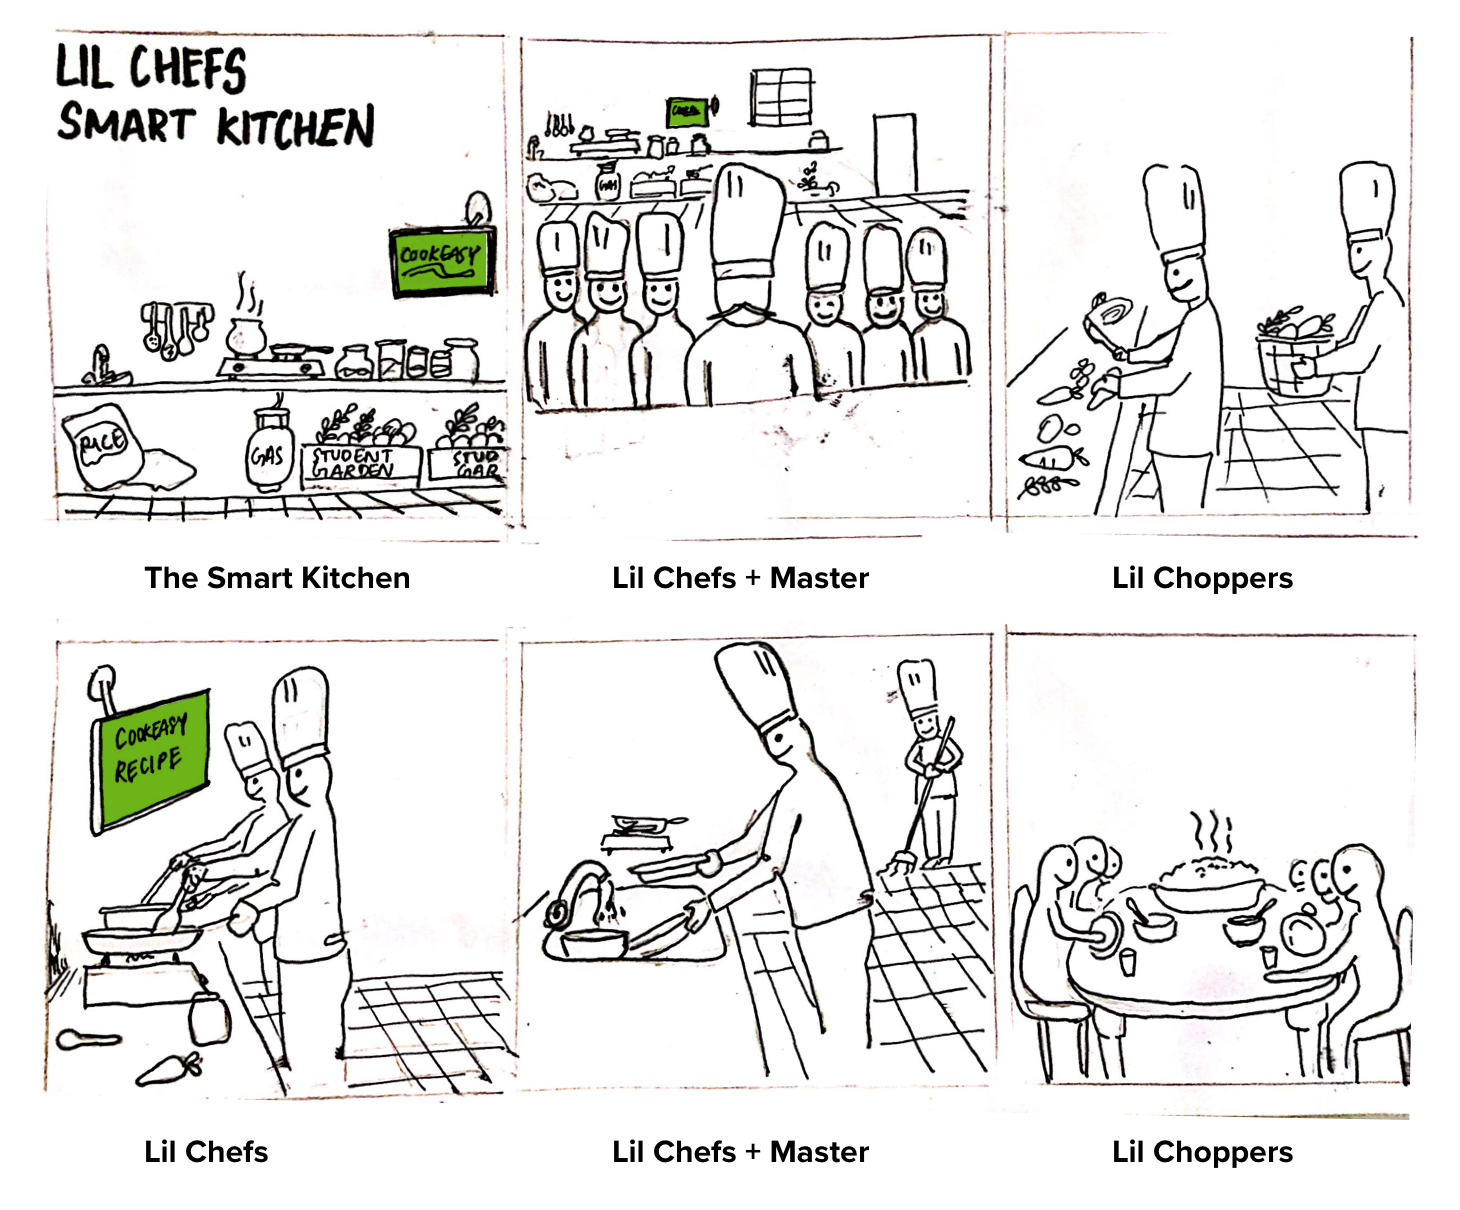 LIL CHEFS
SMART KITCHEN
COOKEASY
RICE
GAS
STUDENT
GARDEN
STUD
GAR
The Smart Kitchen
GAS
Lil Chefs + Master
Lil Choppers
COOKEASY
RECIPE
Lil Chefs
Lil Chefs + Master
Lil Choppers